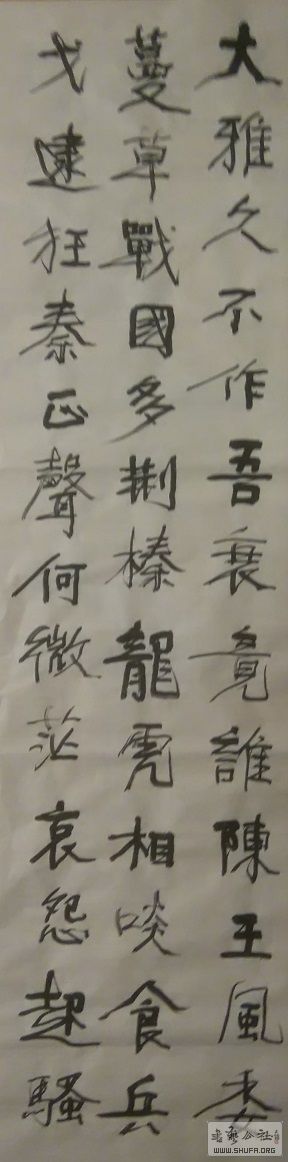 大雅久不作吾衰竟誰陳王風委
蔓草戰國多荆榛龍虎相啖食兵
戈逮狂秦正聲何微茫哀怨起騷
書藝公社
WWW.SHUFA.ORG